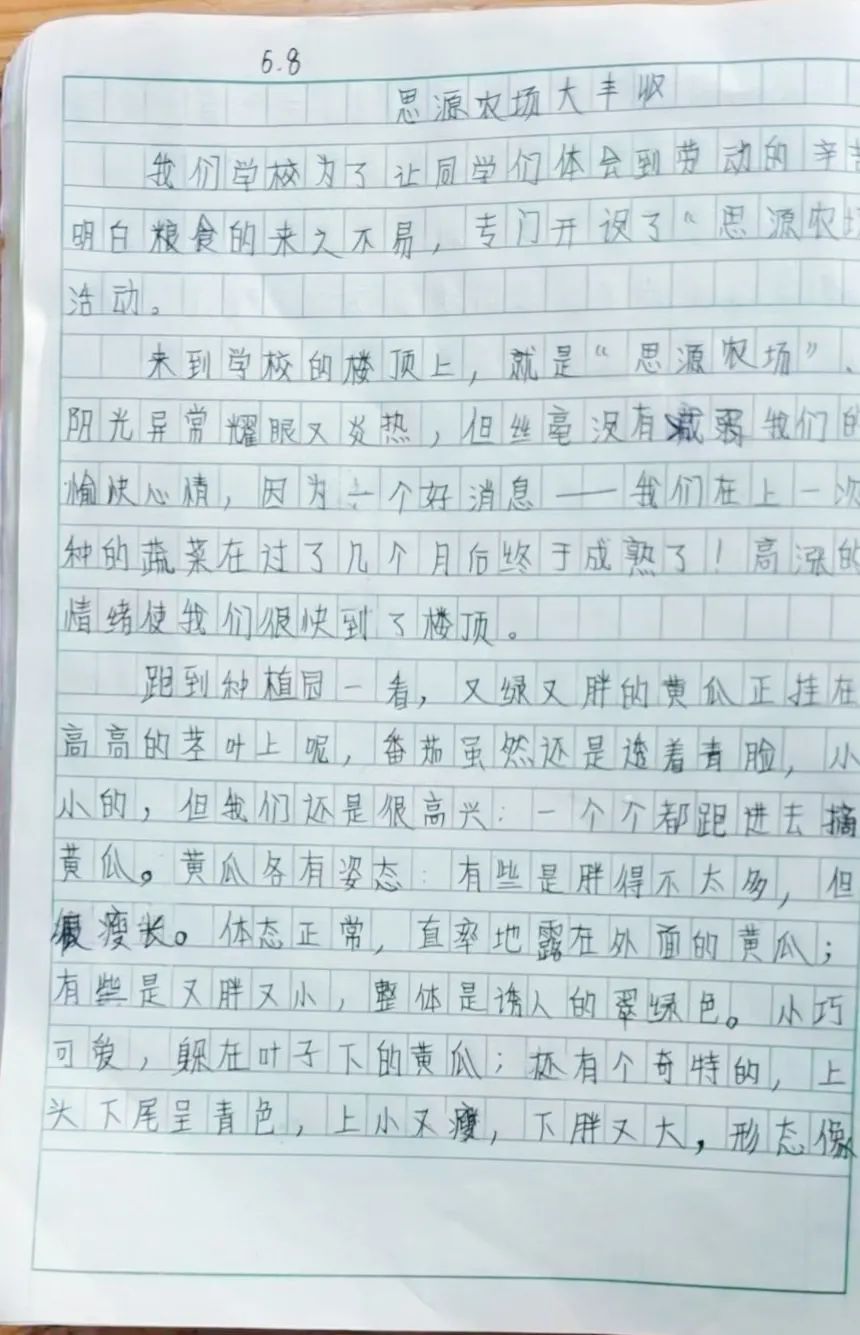 5.8
思源农场大丰收
我们学校为了让同学们体会到劳动的辛苦
明白粮食的来之不易，专门开设了“思源农场
活动。
来到学校的楼顶上，就是“思源农场”、
阳光异常耀眼又炎热，但丝毫没有减弱我们的
愉快心情，因为一个好消息——我们在上一次
种的蔬菜在过了几个月后终于成熟了！高涨的
情绪使我们很快到了楼顶。
跑到种植园一看，又绿又胖的黄瓜正挂在
高高的茎叶上呢，番茄虽然还是透着青脸，小
小的，但我们还是很高兴：一个个都跑进去摘
黄瓜。黄瓜各有姿态：有些是胖得不太多，但
很瘦长。体态正常，直率地露在外面的黄瓜；
有些是又胖又小，整体是诱人的翠绿色。小巧
可爱，躲在叶子下的黄瓜；还有个奇特的，上
头下尾呈青色，上小又瘦，下胖又大，形态像